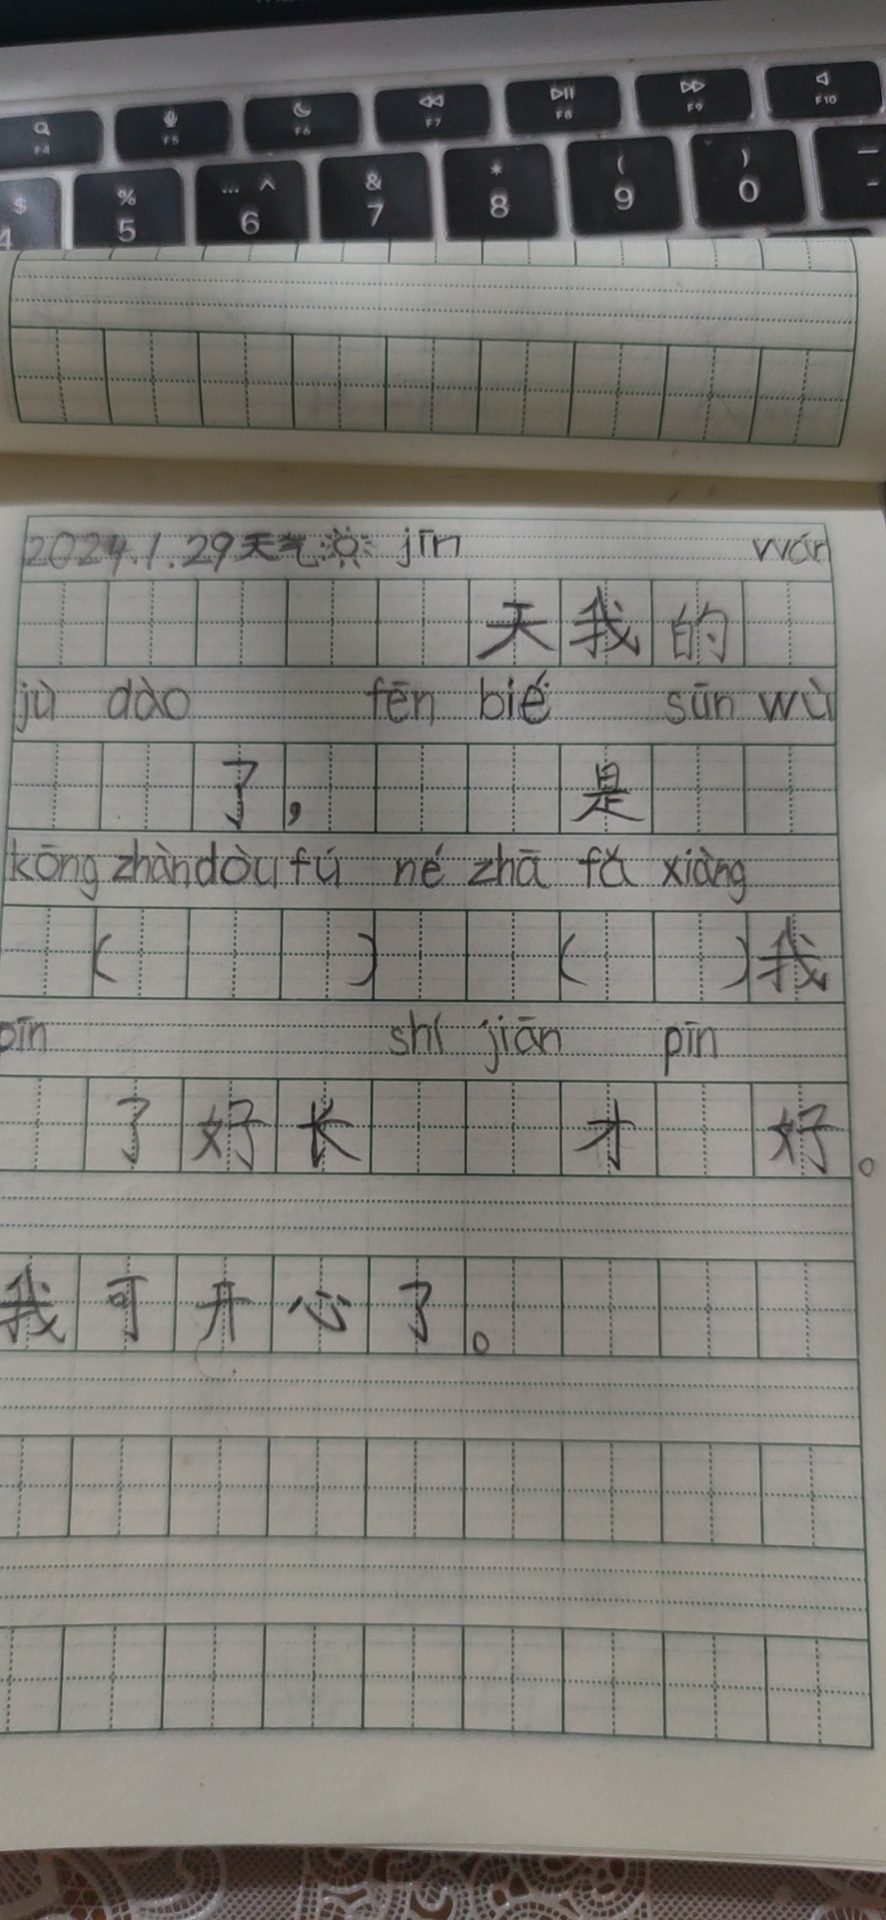 F4 F5 F6 F7 F8 F9 F10
$ % … ^ & * ( )
4 5 6 7 8 9 0
2024.1.29天气 jīn wán
天我的
jù dào fēn bié sūn wù
了，是
kōng zhàn dòu fú né zhā fǎ xiàng
( ) ( )我
pīn shí jiān pīn
了好长 才 好。
我可开心了。